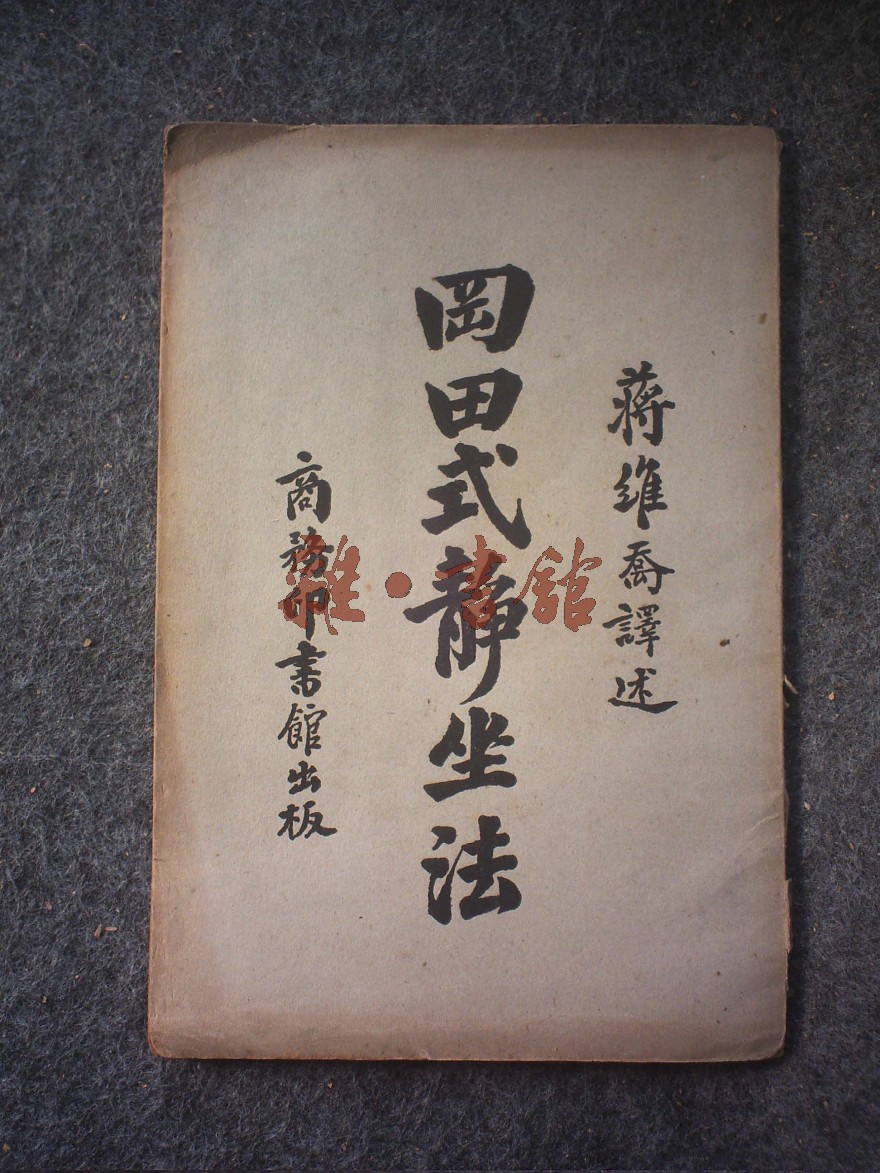 蔣維喬譯述
岡田式靜坐法
商務印書館出板
雜·書館